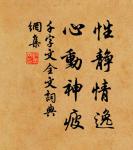 性靜情逸
心動神疲
千字文全文詞典
網集